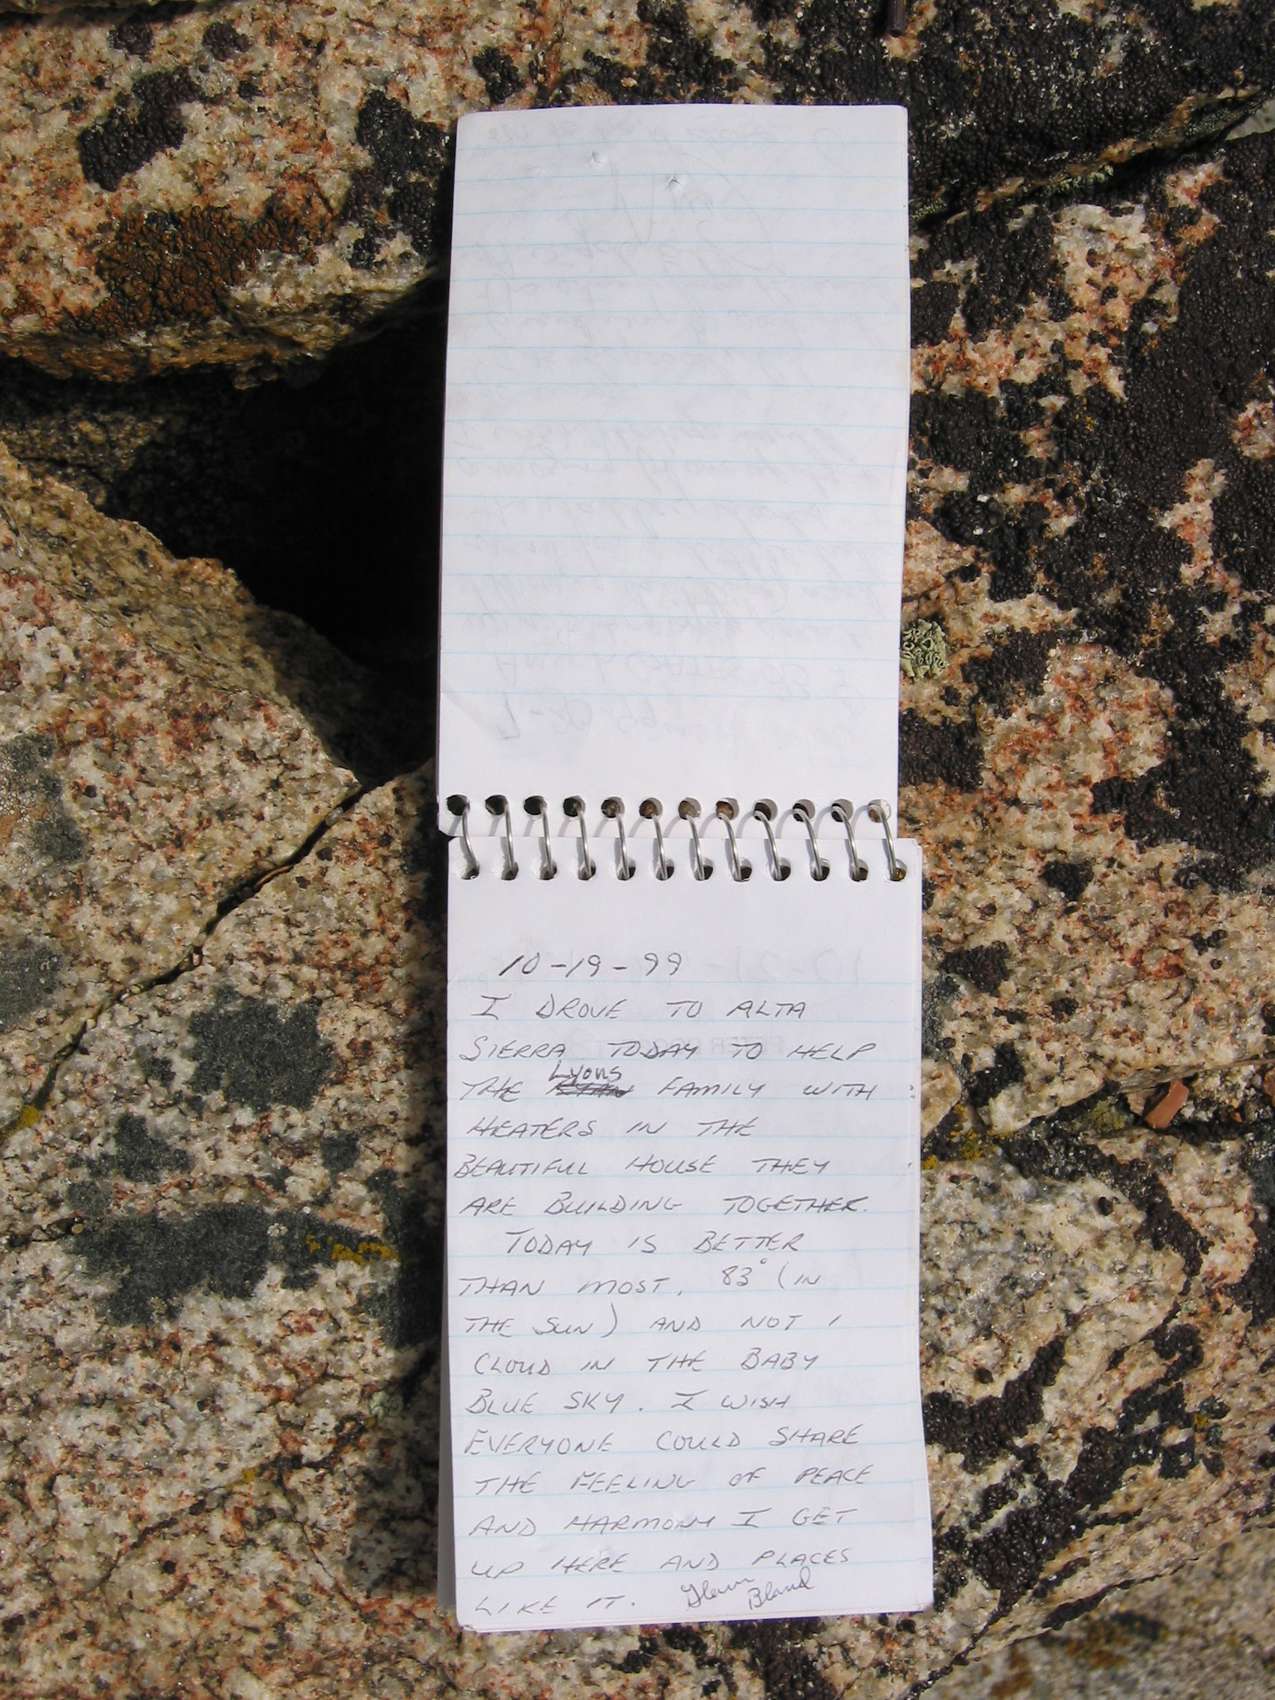 10-19-99
I DROVE TO ALTA
SIERRA TODAY TO HELP
THE Lyons FAMILY WITH
HEATERS IN THE
BEAUTIFUL HOUSE THEY
ARE BUILDING TOGETHER.
TODAY IS BETTER
THAN MOST, 83° (IN
THE SUN) AND NOT 1
CLOUD IN THE BABY
BLUE SKY. I WISH
EVERYONE COULD SHARE
THE FEELING OF PEACE
AND HARMONY I GET
UP HERE AND PLACES
LIKE IT. Glenn Bland